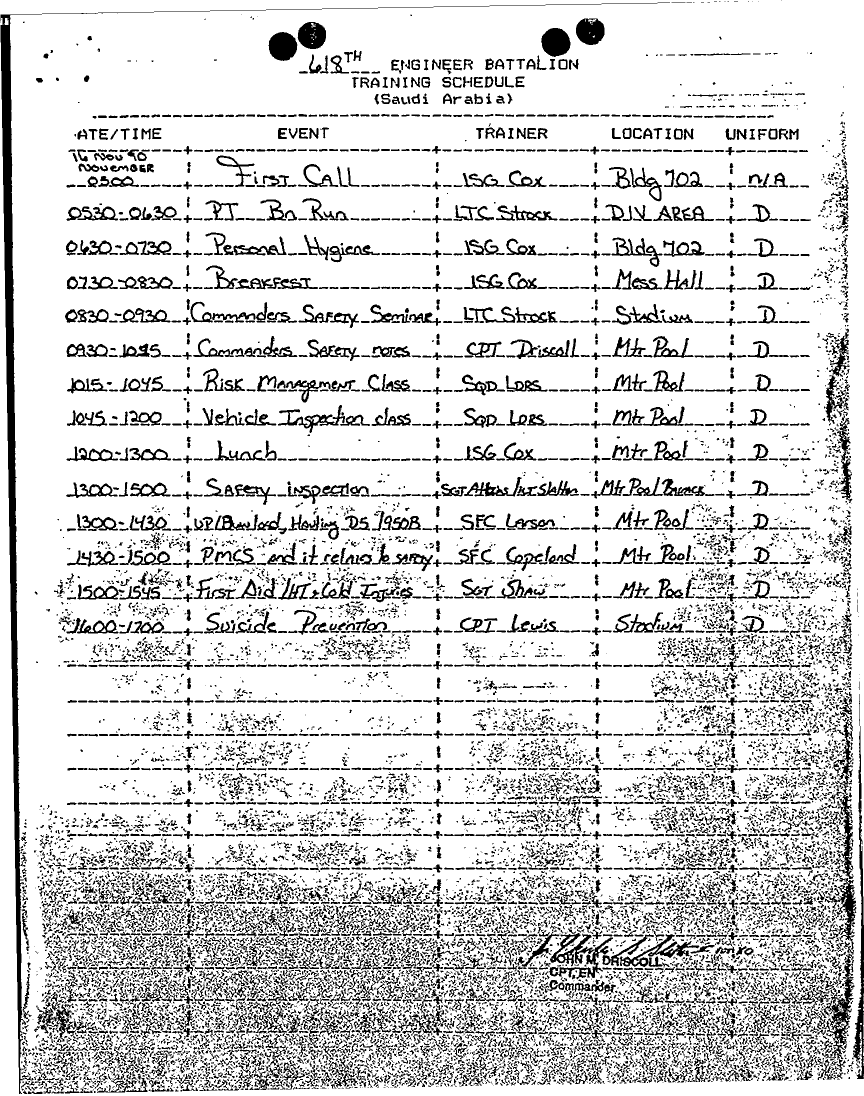 618TH ENGINEER BATTALION
TRAINING SCHEDULE
(Saudi Arabia)
ATE/TIME EVENT TRAINER LOCATION UNIFORM
16 Nov 90
November
0500 First Call 1SG Cox Bldg 702 n/A
0530-0630 PT Bn Run LTC Strock DIV AREA D
0630-0730 Personal Hygiene 1SG Cox Bldg 702 D
0730-0830 Breakfest 1SG Cox Mess Hall D
0830-0930 Commanders Safety Seminar LTC Strock Stadium D
0930- Commanders Safety notes CPT Driscoll Mtr Pool D
1015-1045 Risk Management Class Sqd Ldrs Mtr Pool D
1045-1200 Vehicle Inspection class Sqd Ldrs Mtr Pool D
1200-1300 Lunch 1SG Cox Mtr Pool D
1300-1500 Safety inspection Mtr Pool D
1300-1430 SFC Larson Mtr Pool D
1430-1500 PMCS and it relates to safety SFC Copeland Mtr Pool D
1500-1545 First Aid Cold Injuries SGT Shaw Mtr Pool D
1600-1700 Suicide Prevention CPT Lewis Stadium D
JOHN M. DRISCOLL
CPT, EN
Commander